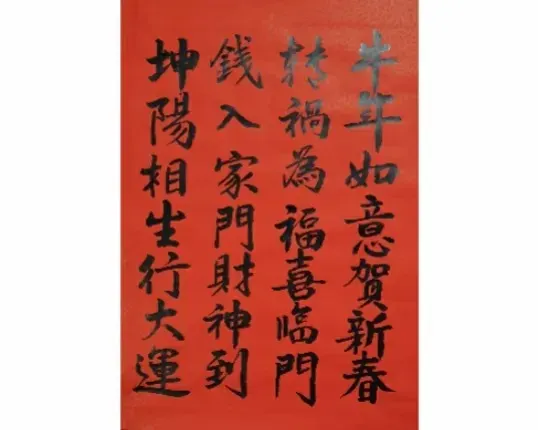 牛年如意賀新春
转禍為福喜臨門
錢入家門財神到
坤陽相生行大運